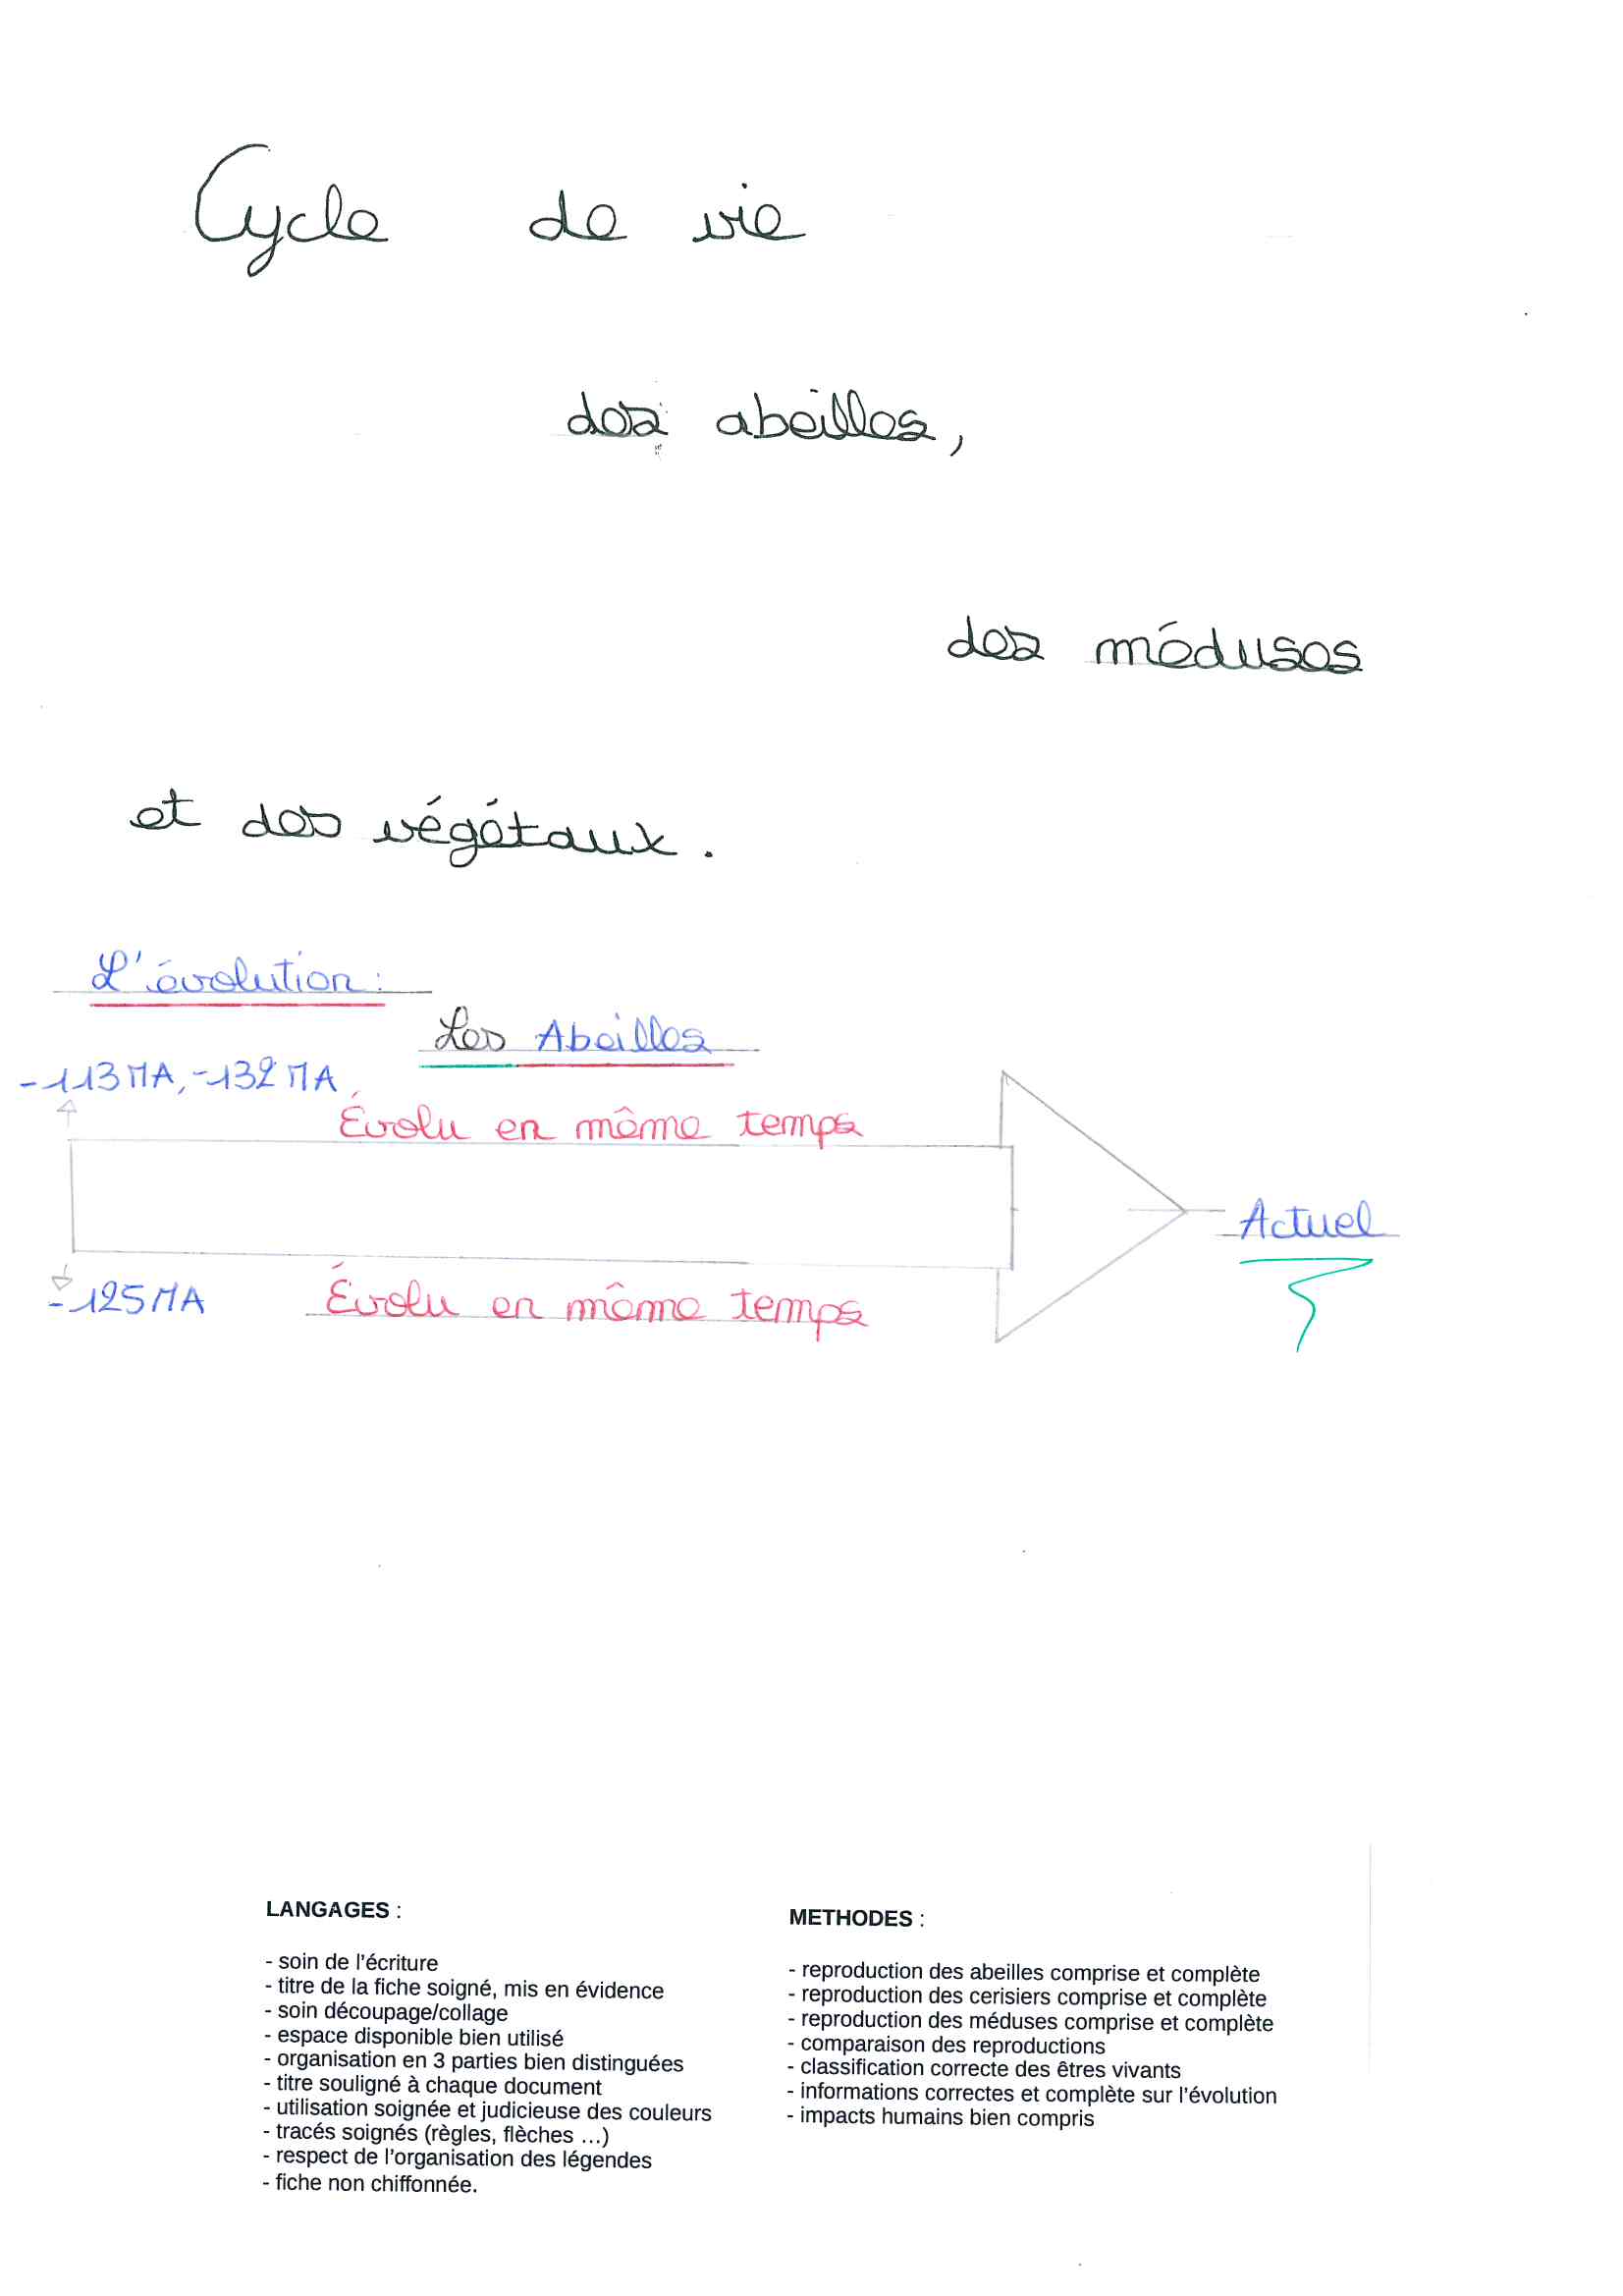 Cycle de vie
des abeilles,
des méduses
et des végétaux.
L'évolution :
Les Abeilles
-113 MA, -132 MA
Évolu en même temps
Actuel
-125 MA
Évolu en même temps
LANGAGES :
- soin de l'écriture
- titre de la fiche soigné, mis en évidence
- soin découpage/collage
- espace disponible bien utilisé
- organisation en 3 parties bien distinguées
- titre souligné à chaque document
- utilisation soignée et judicieuse des couleurs
- tracés soignés (règles, flèches ...)
- respect de l'organisation des légendes
- fiche non chiffonnée.
METHODES :
- reproduction des abeilles comprise et complète
- reproduction des cerisiers comprise et complète
- reproduction des méduses comprise et complète
- comparaison des reproductions
- classification correcte des êtres vivants
- informations correctes et complète sur l'évolution
- impacts humains bien compris